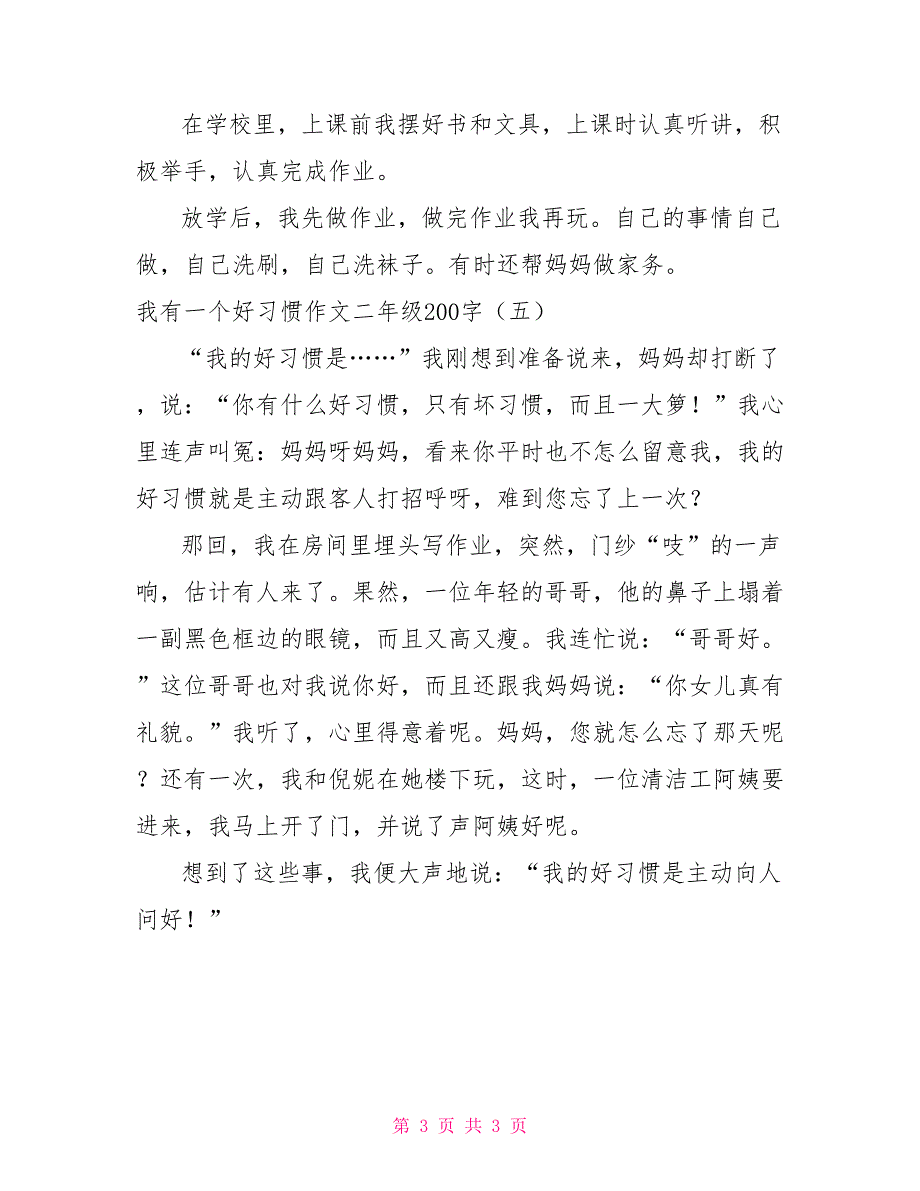 在学校里，上课前我摆好书和文具，上课时认真听讲，积
极举手，认真完成作业。
放学后，我先做作业，做完作业我再玩。自己的事情自己
做，自己洗刷，自己洗袜子。有时还帮妈妈做家务。
我有一个好习惯作文二年级200字（五）
“我的好习惯是……”我刚想到准备说来，妈妈却打断了
，说：“你有什么好习惯，只有坏习惯，而且一大箩！”我心
里连声叫冤：妈妈呀妈妈，看来你平时也不怎么留意我，我的
好习惯就是主动跟客人打招呼呀，难到您忘了上一次？
那回，我在房间里埋头写作业，突然，门纱“吱”的一声
响，估计有人来了。果然，一位年轻的哥哥，他的鼻子上塌着
一副黑色框边的眼镜，而且又高又瘦。我连忙说：“哥哥好。
”这位哥哥也对我说你好，而且还跟我妈妈说：“你女儿真有
礼貌。”我听了，心里得意着呢。妈妈，您就怎么忘了那天呢
？还有一次，我和倪妮在她楼下玩，这时，一位清洁工阿姨要
进来，我马上开了门，并说了声阿姨好呢。
想到了这些事，我便大声地说：“我的好习惯是主动向人
问好！”
第 3 页 共 3 页